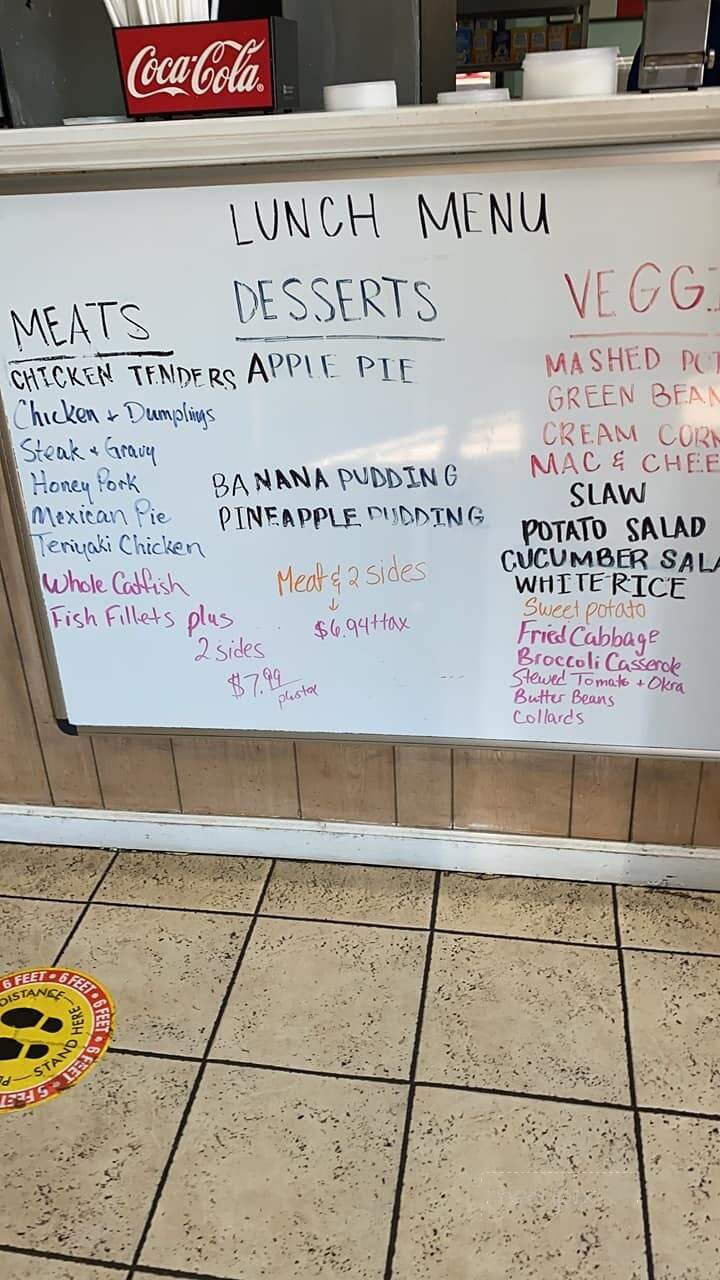 Coca-Cola
LUNCH MENU
MEATS
CHICKEN TENDERS
Chicken + Dumplings
Steak + Gravy
Honey Pork
Mexican Pie
Teriyaki Chicken
Whole Catfish
Fish Fillets plus
2 sides
$7.99
plustax
DESSERTS
APPLE PIE
BANANA PUDDING
PINEAPPLE PUDDING
Meat & 2 sides
$6.94+tax
VEGGI
MASHED POT
GREEN BEAN
CREAM CORN
MAC & CHEE
SLAW
POTATO SALAD
CUCUMBER SALA
WHITE RICE
Sweet potato
Fried Cabbage
Broccoli Casserole
Stewed Tomato + Okra
Butter Beans
Collards
6 FEET • 6 FEET • 6 FEET • 6 FEET
DISTANCE
STAND HERE